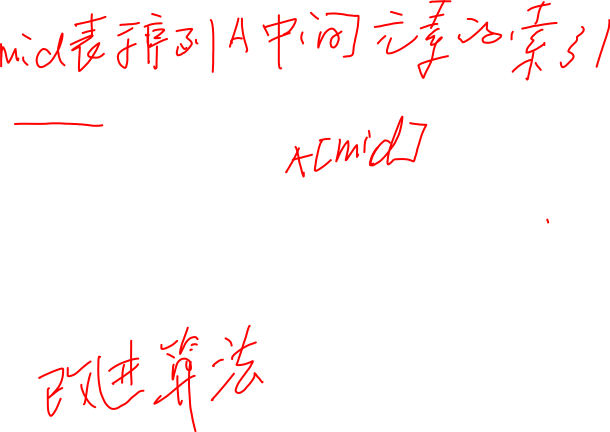 mid表示序列A中间元素的索引
A[mid]
改进算法